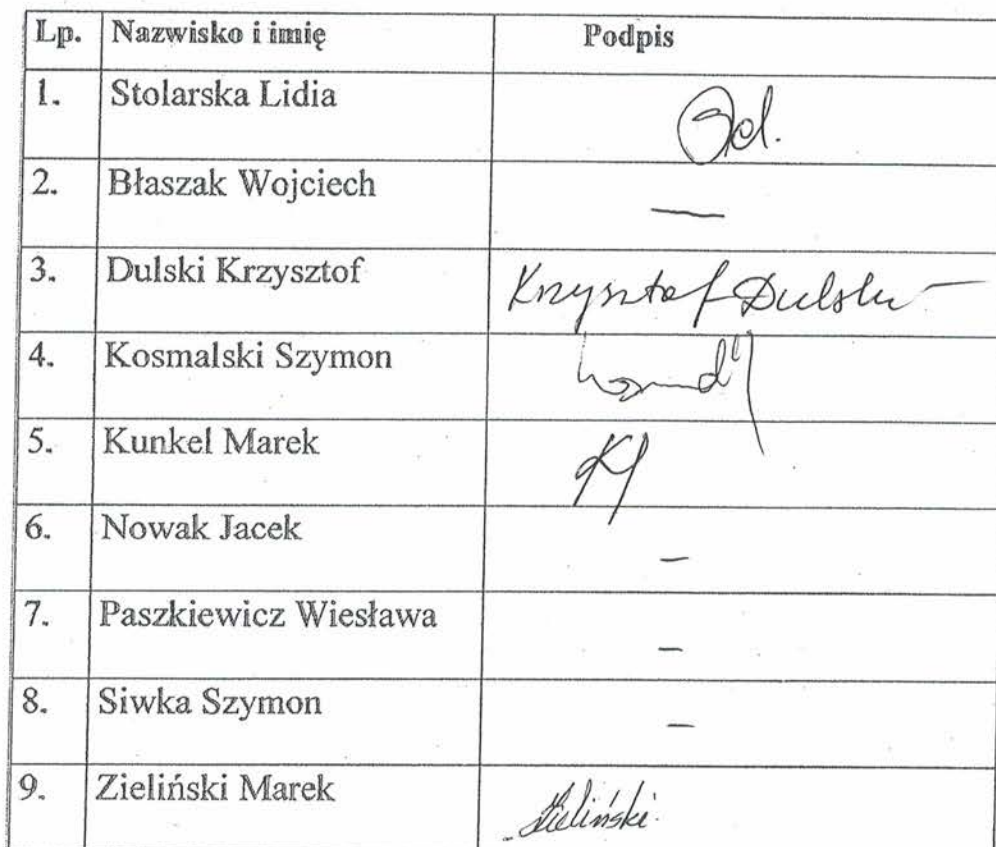 Lp. Nazwisko i imię Podpis
1. Stolarska Lidia
2. Błaszak Wojciech —
3. Dulski Krzysztof Krzysztof Dulski
4. Kosmalski Szymon
5. Kunkel Marek
6. Nowak Jacek –
7. Paszkiewicz Wiesława –
8. Siwka Szymon –
9. Zieliński Marek Zieliński